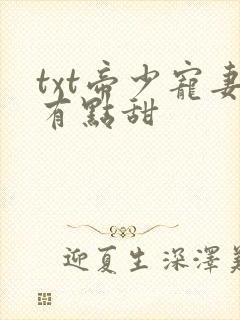 txt帝少寵妻
有點甜
迎夏生深澤美